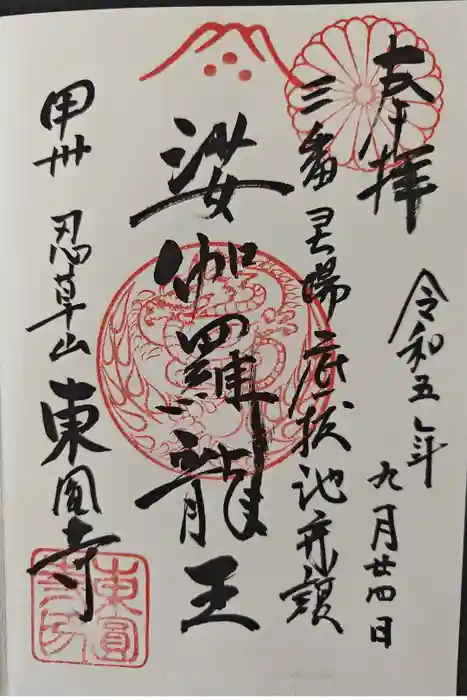 奉拝
令和五年
九月廿四日
三番霊場底抜池弁額
娑伽羅龍王
甲州 忍草山 東圓寺
東圓寺印